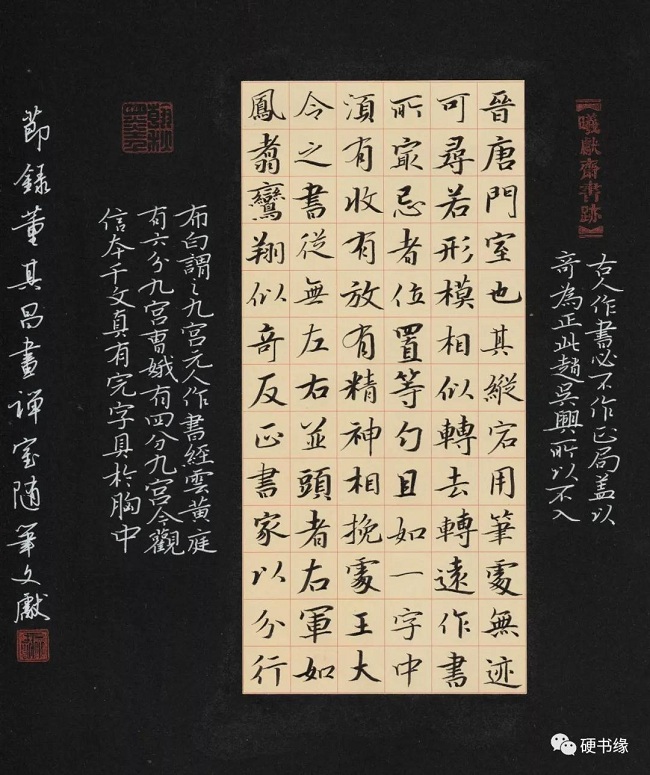 【曦獻齋書跡】
古人作書必不作正局盖以
奇為正此趙吳興所以不入
晉唐門室也其縱宕用筆處無迹
可尋若形模相似轉去轉遠作書
所冣忌者位置等勻且如一字中
須有收有放有精神相挽處王大
令之書從無左右並頭者右軍如
鳳翥鸞翔似奇反正書家以分行
布白謂之九宮元人作書經雲黃庭
有六分九宮曹娥有四分九宮今觀
信本千文真有完字具於胸中
節錄董其昌畫禅室隨筆文獻
硬书缘